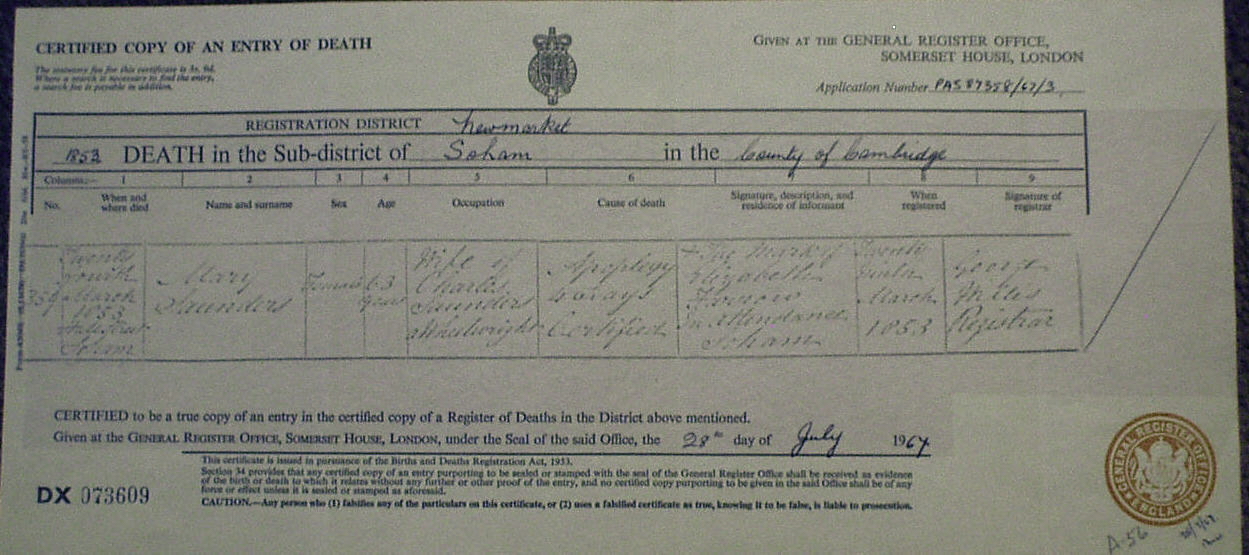 CERTIFIED COPY OF AN ENTRY OF DEATH
GIVEN AT THE GENERAL REGISTER OFFICE,
SOMERSET HOUSE, LONDON
The statutory fee for this certificate is 3s. 9d.
Where a search is necessary to find the entry,
a search fee is payable in addition.
Application Number PAS 87358/67/3
REGISTRATION DISTRICT Newmarket
1853 DEATH in the Sub-district of Soham in the County of Cambridge
Columns:— 1 2 3 4 5 6 7 8 9
No. When and where died Name and surname Sex Age Occupation Cause of death Signature, description, and residence of informant When registered Signature of registrar
Twenty Wife of The Mark of Twenty
fourth Mary Female 63 Charles Apoplexy Elizabeth George
March Saunders years Saunders days March Mills
1853 Wheelwright Certified In attendance 1853 Registrar
Soham Soham
CERTIFIED to be a true copy of an entry in the certified copy of a Register of Deaths in the District above mentioned.
Given at the GENERAL REGISTER OFFICE, SOMERSET HOUSE, LONDON, under the Seal of the said Office, the 28th day of July 1967
This certificate is issued in pursuance of the Births and Deaths Registration Act, 1953.
Section 34 provides that any certified copy of an entry purporting to be sealed or stamped with the seal of the General Register Office shall be received as evidence
of the birth or death to which it relates without any further or other proof of the entry, and no certified copy purporting to be given in the said Office shall be of any
force or effect unless it is sealed or stamped as aforesaid.
DX 073609
CAUTION.—Any person who (1) falsifies any of the particulars on this certificate, or (2) uses a falsified certificate as true, knowing it to be false, is liable to prosecution.
GENERAL REGISTER OFFICE
ENGLAND
A-56